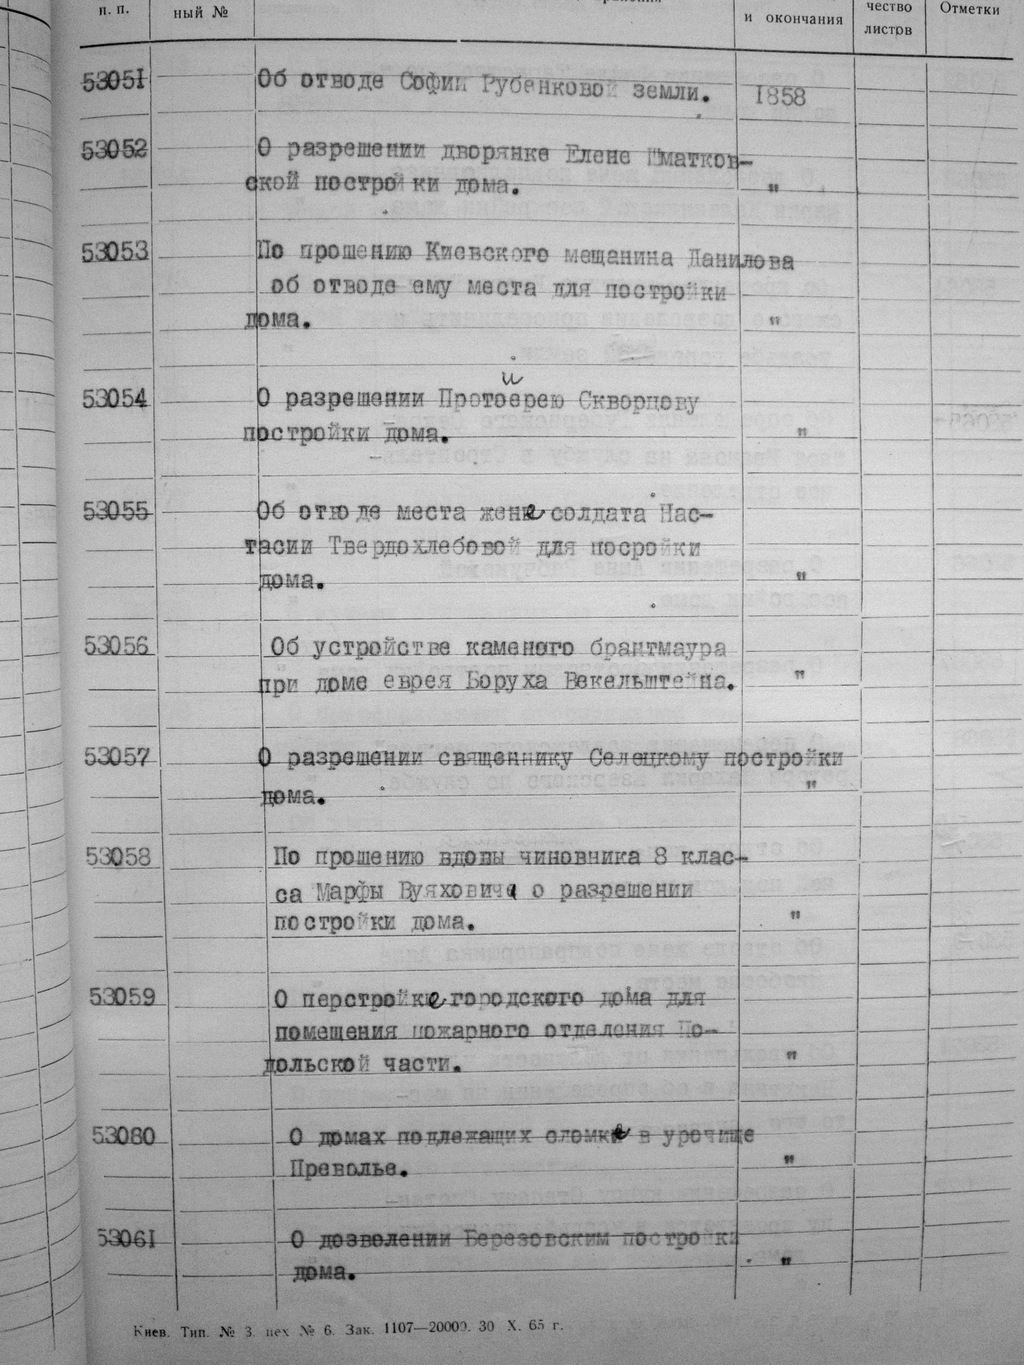 п. п.
ный №
и окончания
чество
листов
Отметки
53051 Об отводе Софии Рубенковой земли. 1858
53052 О разрешении дворянке Елене Гматков-
ской постройки дома. "
53053 По прошению Киевского мещанина Данилова
об отводе ему места для постройки
дома. "
53054 О разрешении Протоиерею Скворцову
постройки дома. "
53055 Об отводе места жене солдата Нас-
тасии Твердохлебовой для посройки
дома. "
53056 Об устройстве каменого брантмаура
при доме еврея Боруха Векельштейна. "
53057 О разрешении священнику Селецкому постройки
дома. "
53058 По прошению вдовы чиновника 8 клас-
са Марфы Вуяхович о разрешении
постройки дома. "
53059 О перстройке городского дома для
помещения пожарного отделения По-
дольской части. "
53060 О домах подлежащих сломке в урочище
Преволье. "
53061 О дозволении Березовским постройки
дома. "
Киев. Тип. № 3. цех № 6. Зак. 1107—20000. 30 X. 65 г.